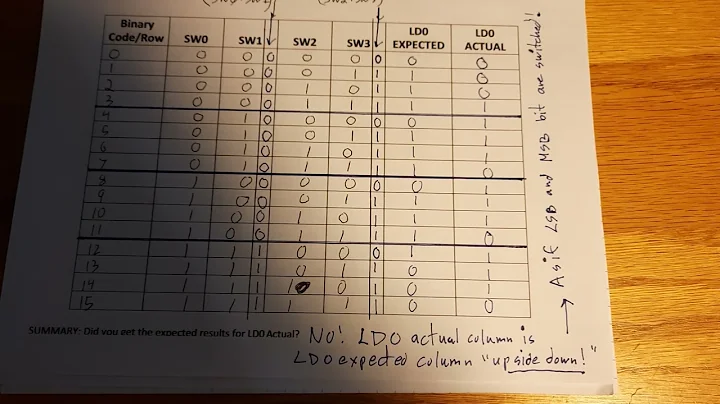 Binary Code/Row SW0 SW1 SW2 SW3 LD0 EXPECTED LD0 ACTUAL
0 0 0 0 0 0 0 0 0
1 0 0 0 0 1 1 1 0
2 0 0 0 1 0 1 1 0
3 0 0 0 1 1 1 1 1
4 0 1 0 0 0 0 0 1
5 0 1 0 0 1 1 1 1
6 0 1 0 1 0 1 1 1
7 0 1 0 1 1 1 1 0
8 1 0 0 0 0 0 0 1
9 1 0 0 0 1 1 1 1
10 1 0 0 1 0 1 1 1
11 1 0 0 1 1 1 1 0
12 1 1 1 0 0 0 1 1
13 1 1 1 0 1 1 0 1
14 1 1 1 1 0 1 0 1
15 1 1 1 1 1 1 0 0
SUMMARY: Did you get the expected results for LD0 Actual? No! LD0 actual column is
LD0 expected column "upside down!"
→ As if LSB and MSB bit are switched!